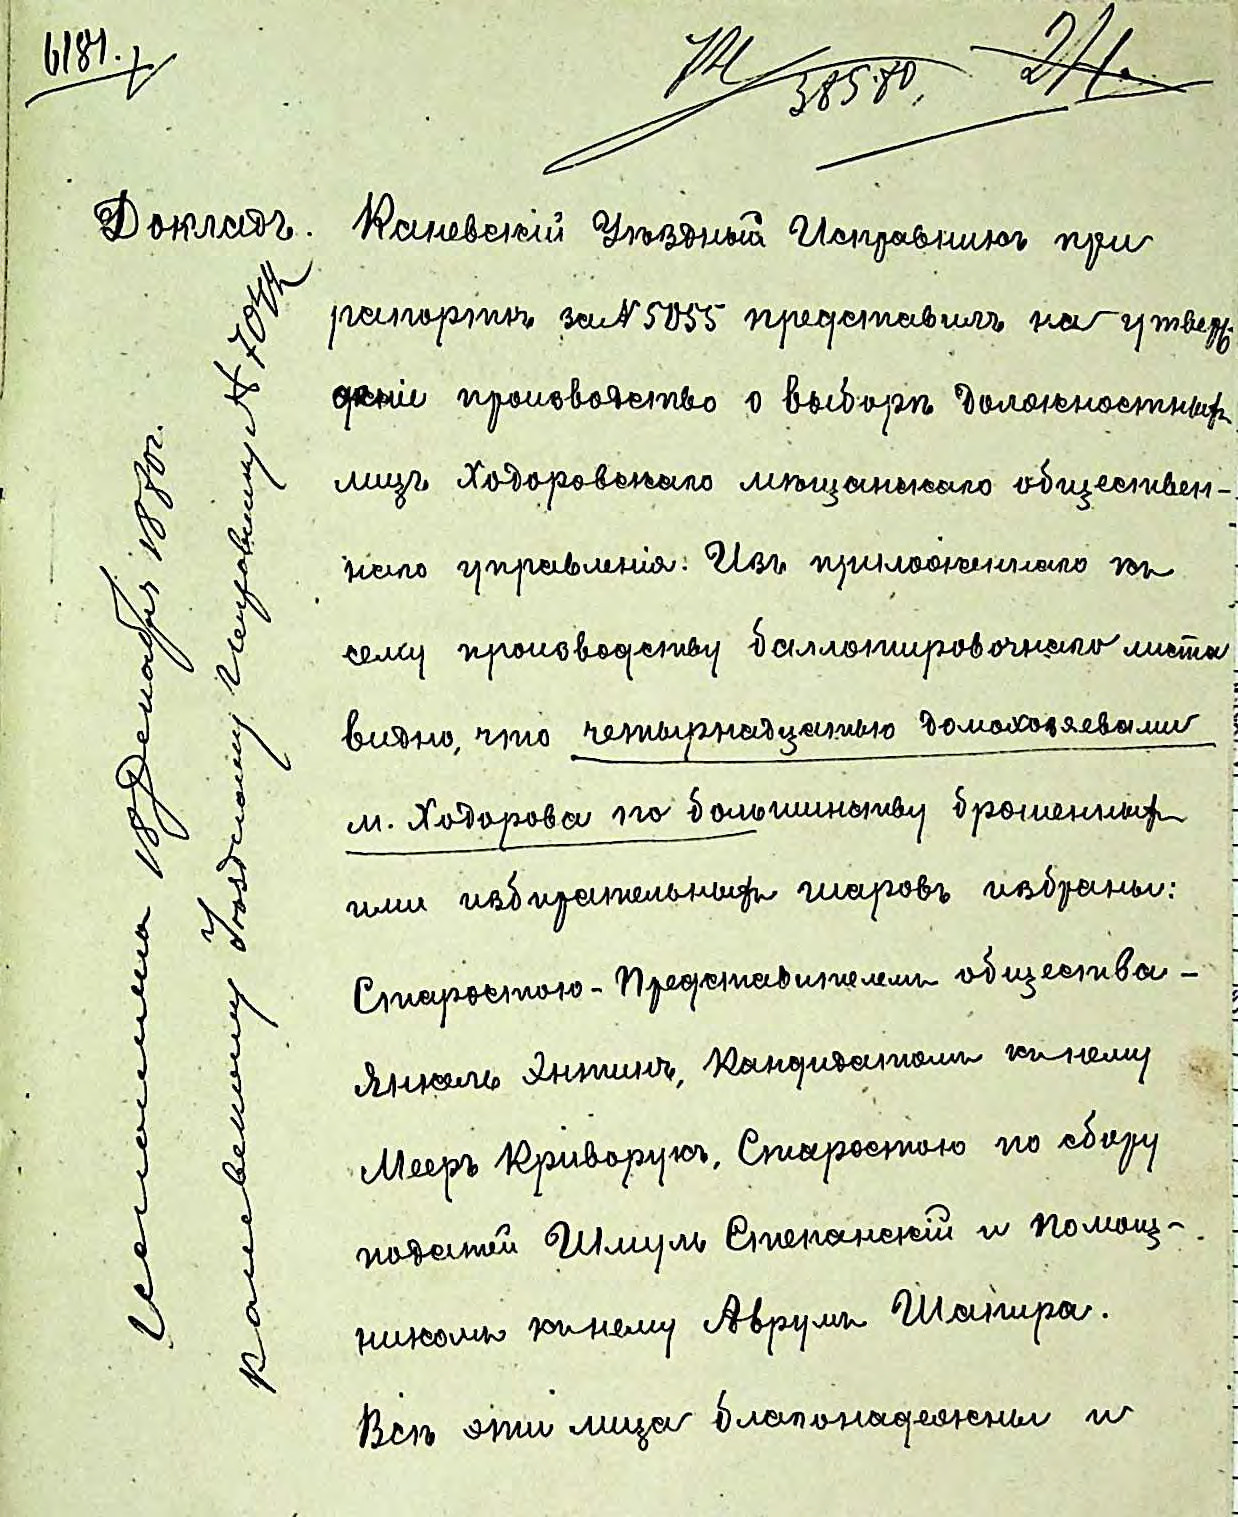 6181.
385.80.
24.
Докладъ.
Каневскій Уѣздный Исправникъ при
рапортѣ за № 5055 представилъ на утверж-
деніе производство о выборѣ должностныхъ
лицъ Ходоровскаго мѣщанскаго обществен-
наго управленія: Изъ приложеннаго къ
сему производству баллотировочнаго листа
видно, что четырнадцатью домохозяевами
м. Ходорова по большинству брошенныхъ
ими избирательныхъ шаровъ избраны:
Старостою-Представителемъ общества -
Янкель Энтинъ, Кандидатомъ къ нему
Мееръ Криворукъ, Старостою по сбору
податей Шмуль Степанскій и Помощ-
никомъ къ нему Аврумъ Шапира.
Всѣ эти лица благонадежны и
Исполнено 18 Декабря 1880 г.
Каневскому Уѣздному Исправнику №